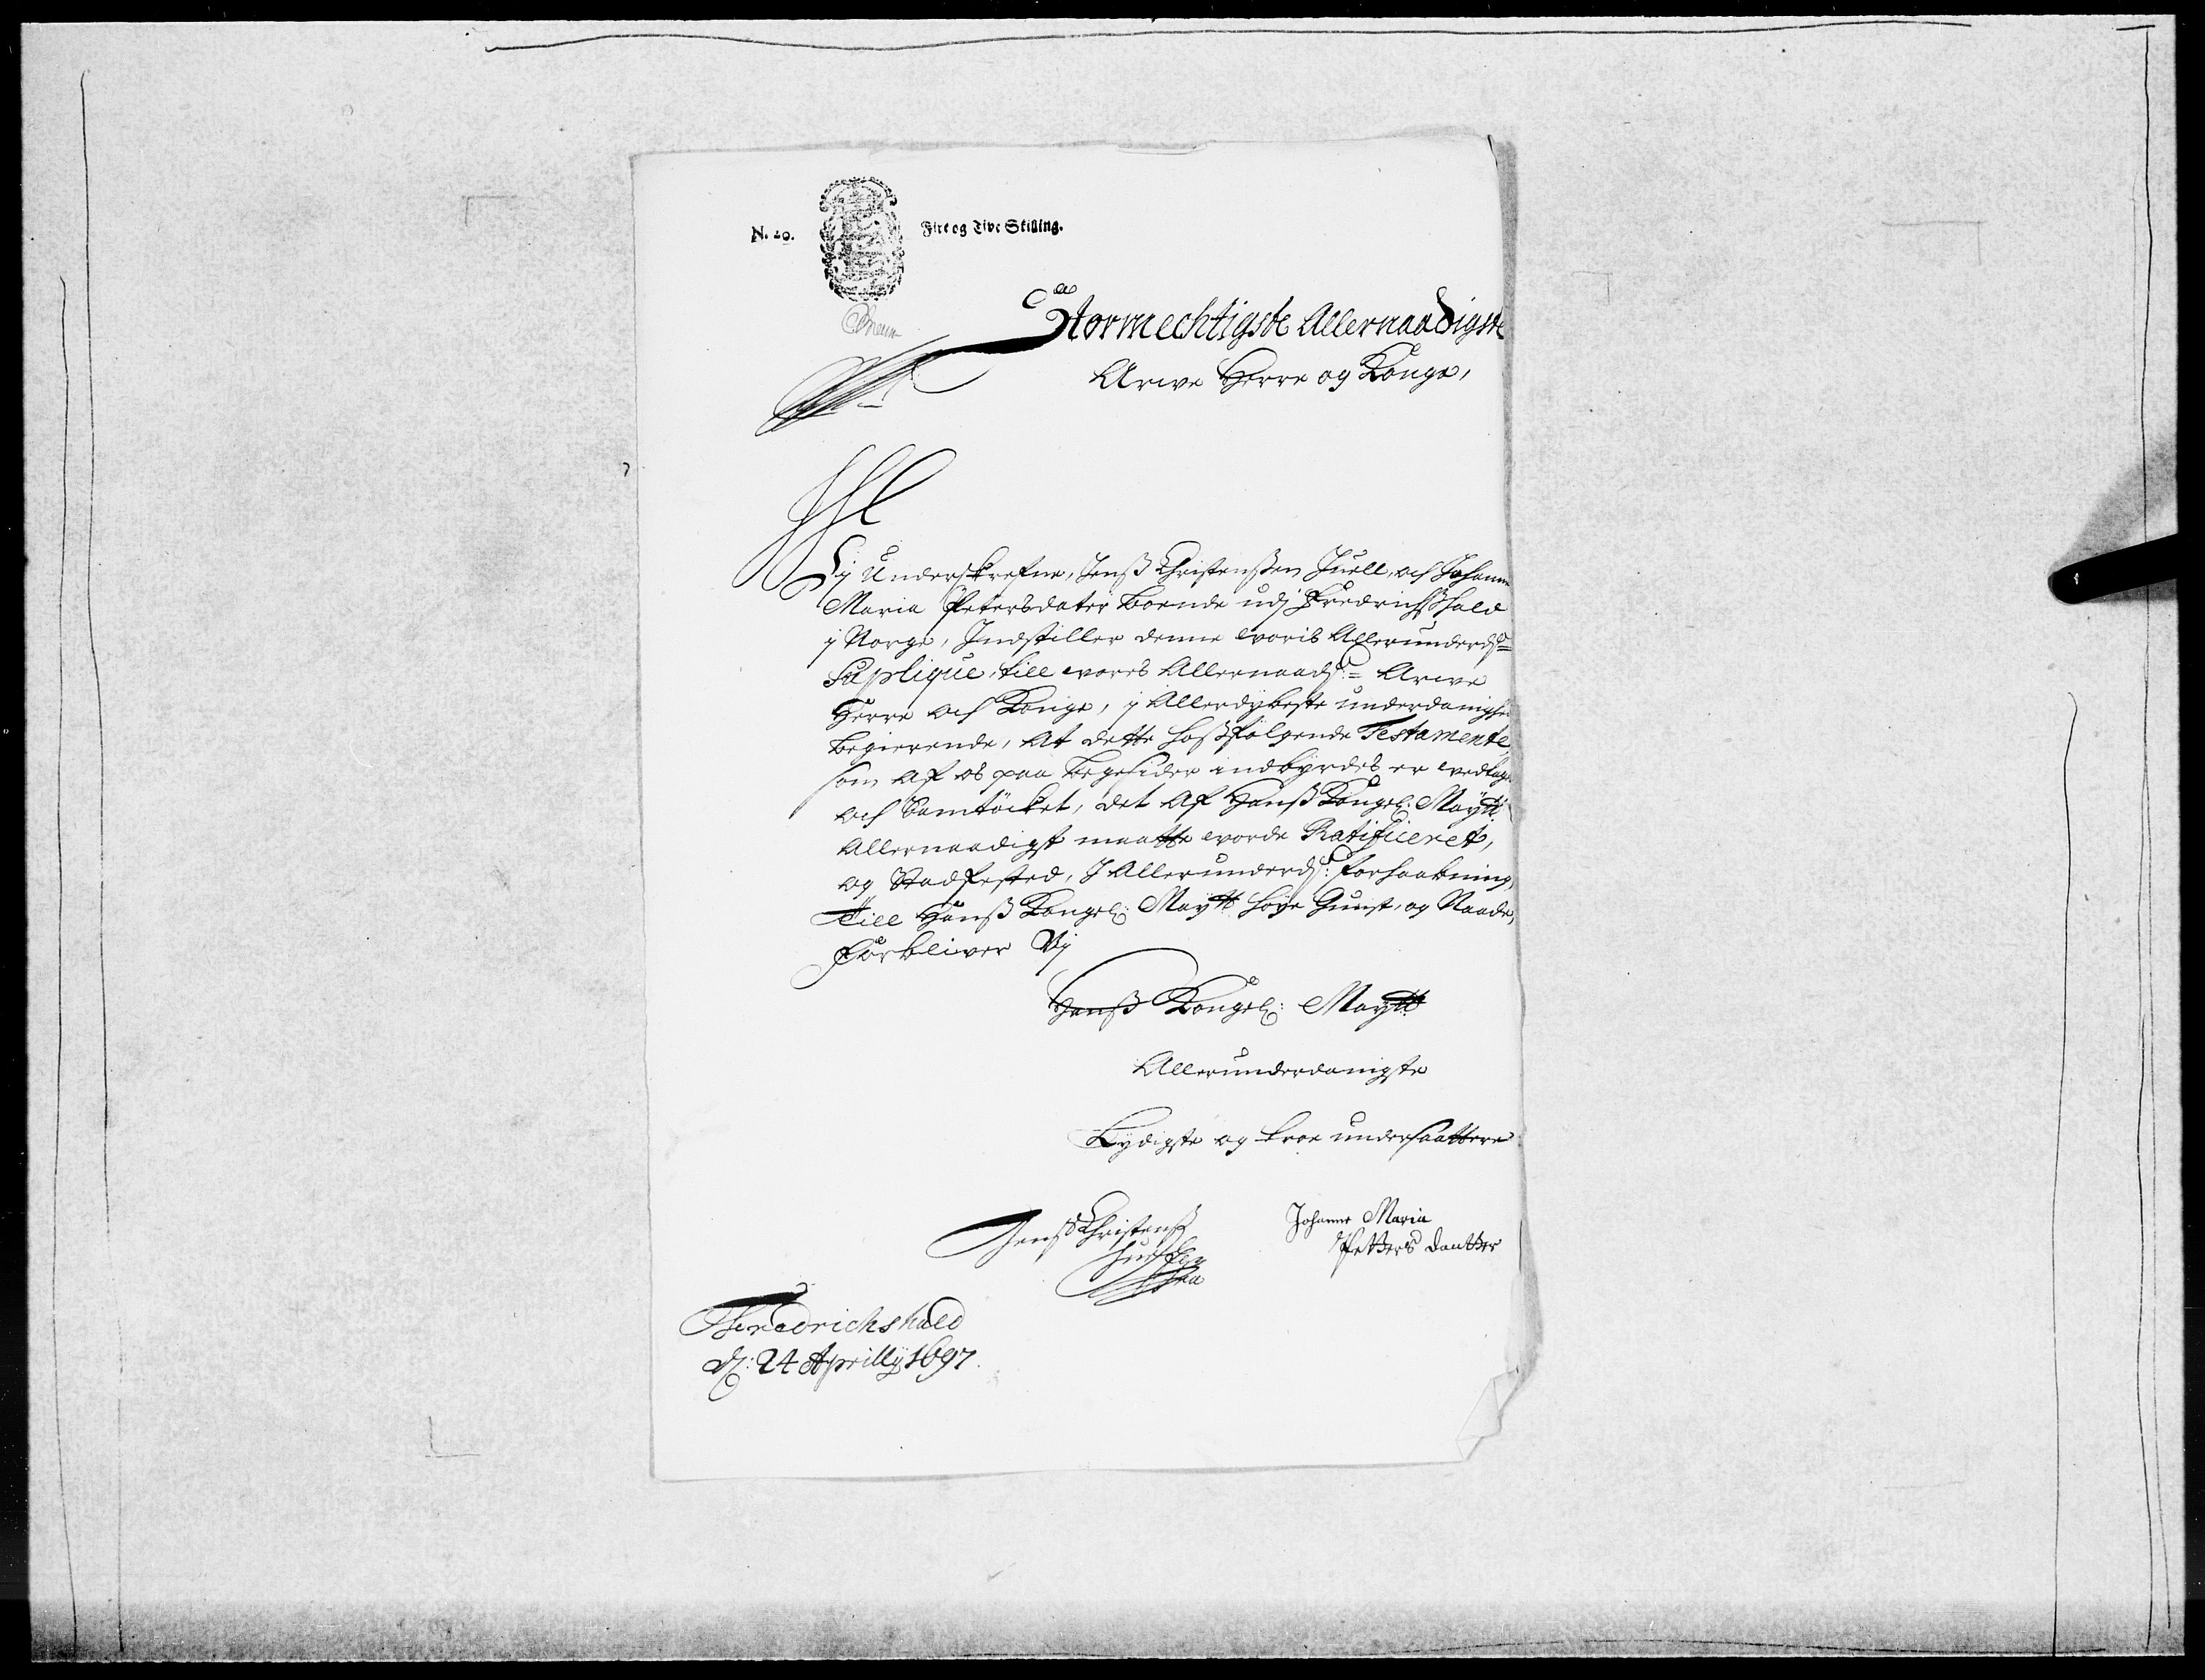 N. 20.
Fire og Tive Skilling.
Stormechtigste Allernaadigste
Arwe Herre og Konge,
Wj Underskrefne, Jenß Christenßen Juell, och Johanne
Maria Petersdater boende udj Fredrichßhald
j Norge, Indstiller denne woris Allerunderd:
Suplique, till wores Allernaad: Arwe
Herre och Konge, j Allerdybeste underdanighed
begierende, At dette hoßfølgende Testamente,
som af os paa begesider indbyrdes er wedtagen
och Samtöcket, det Af Hanß Kongel: Maytt
Allernaadigst maatte worde Ratificeret,
og Stadfested, J Allerunderd: forhaabning,
till Hanß Kongel: Maytt høye Gunst, og Naade,
Forbliwer Wj
Hanß Kongel: Maytt
Allerunderdanigste
Lydigste og troe undersaattere
Jenß Christenß
Juell
Johanne Maria
Petters dautter
Fredrichshald
d: 24 Aprilly 1697.